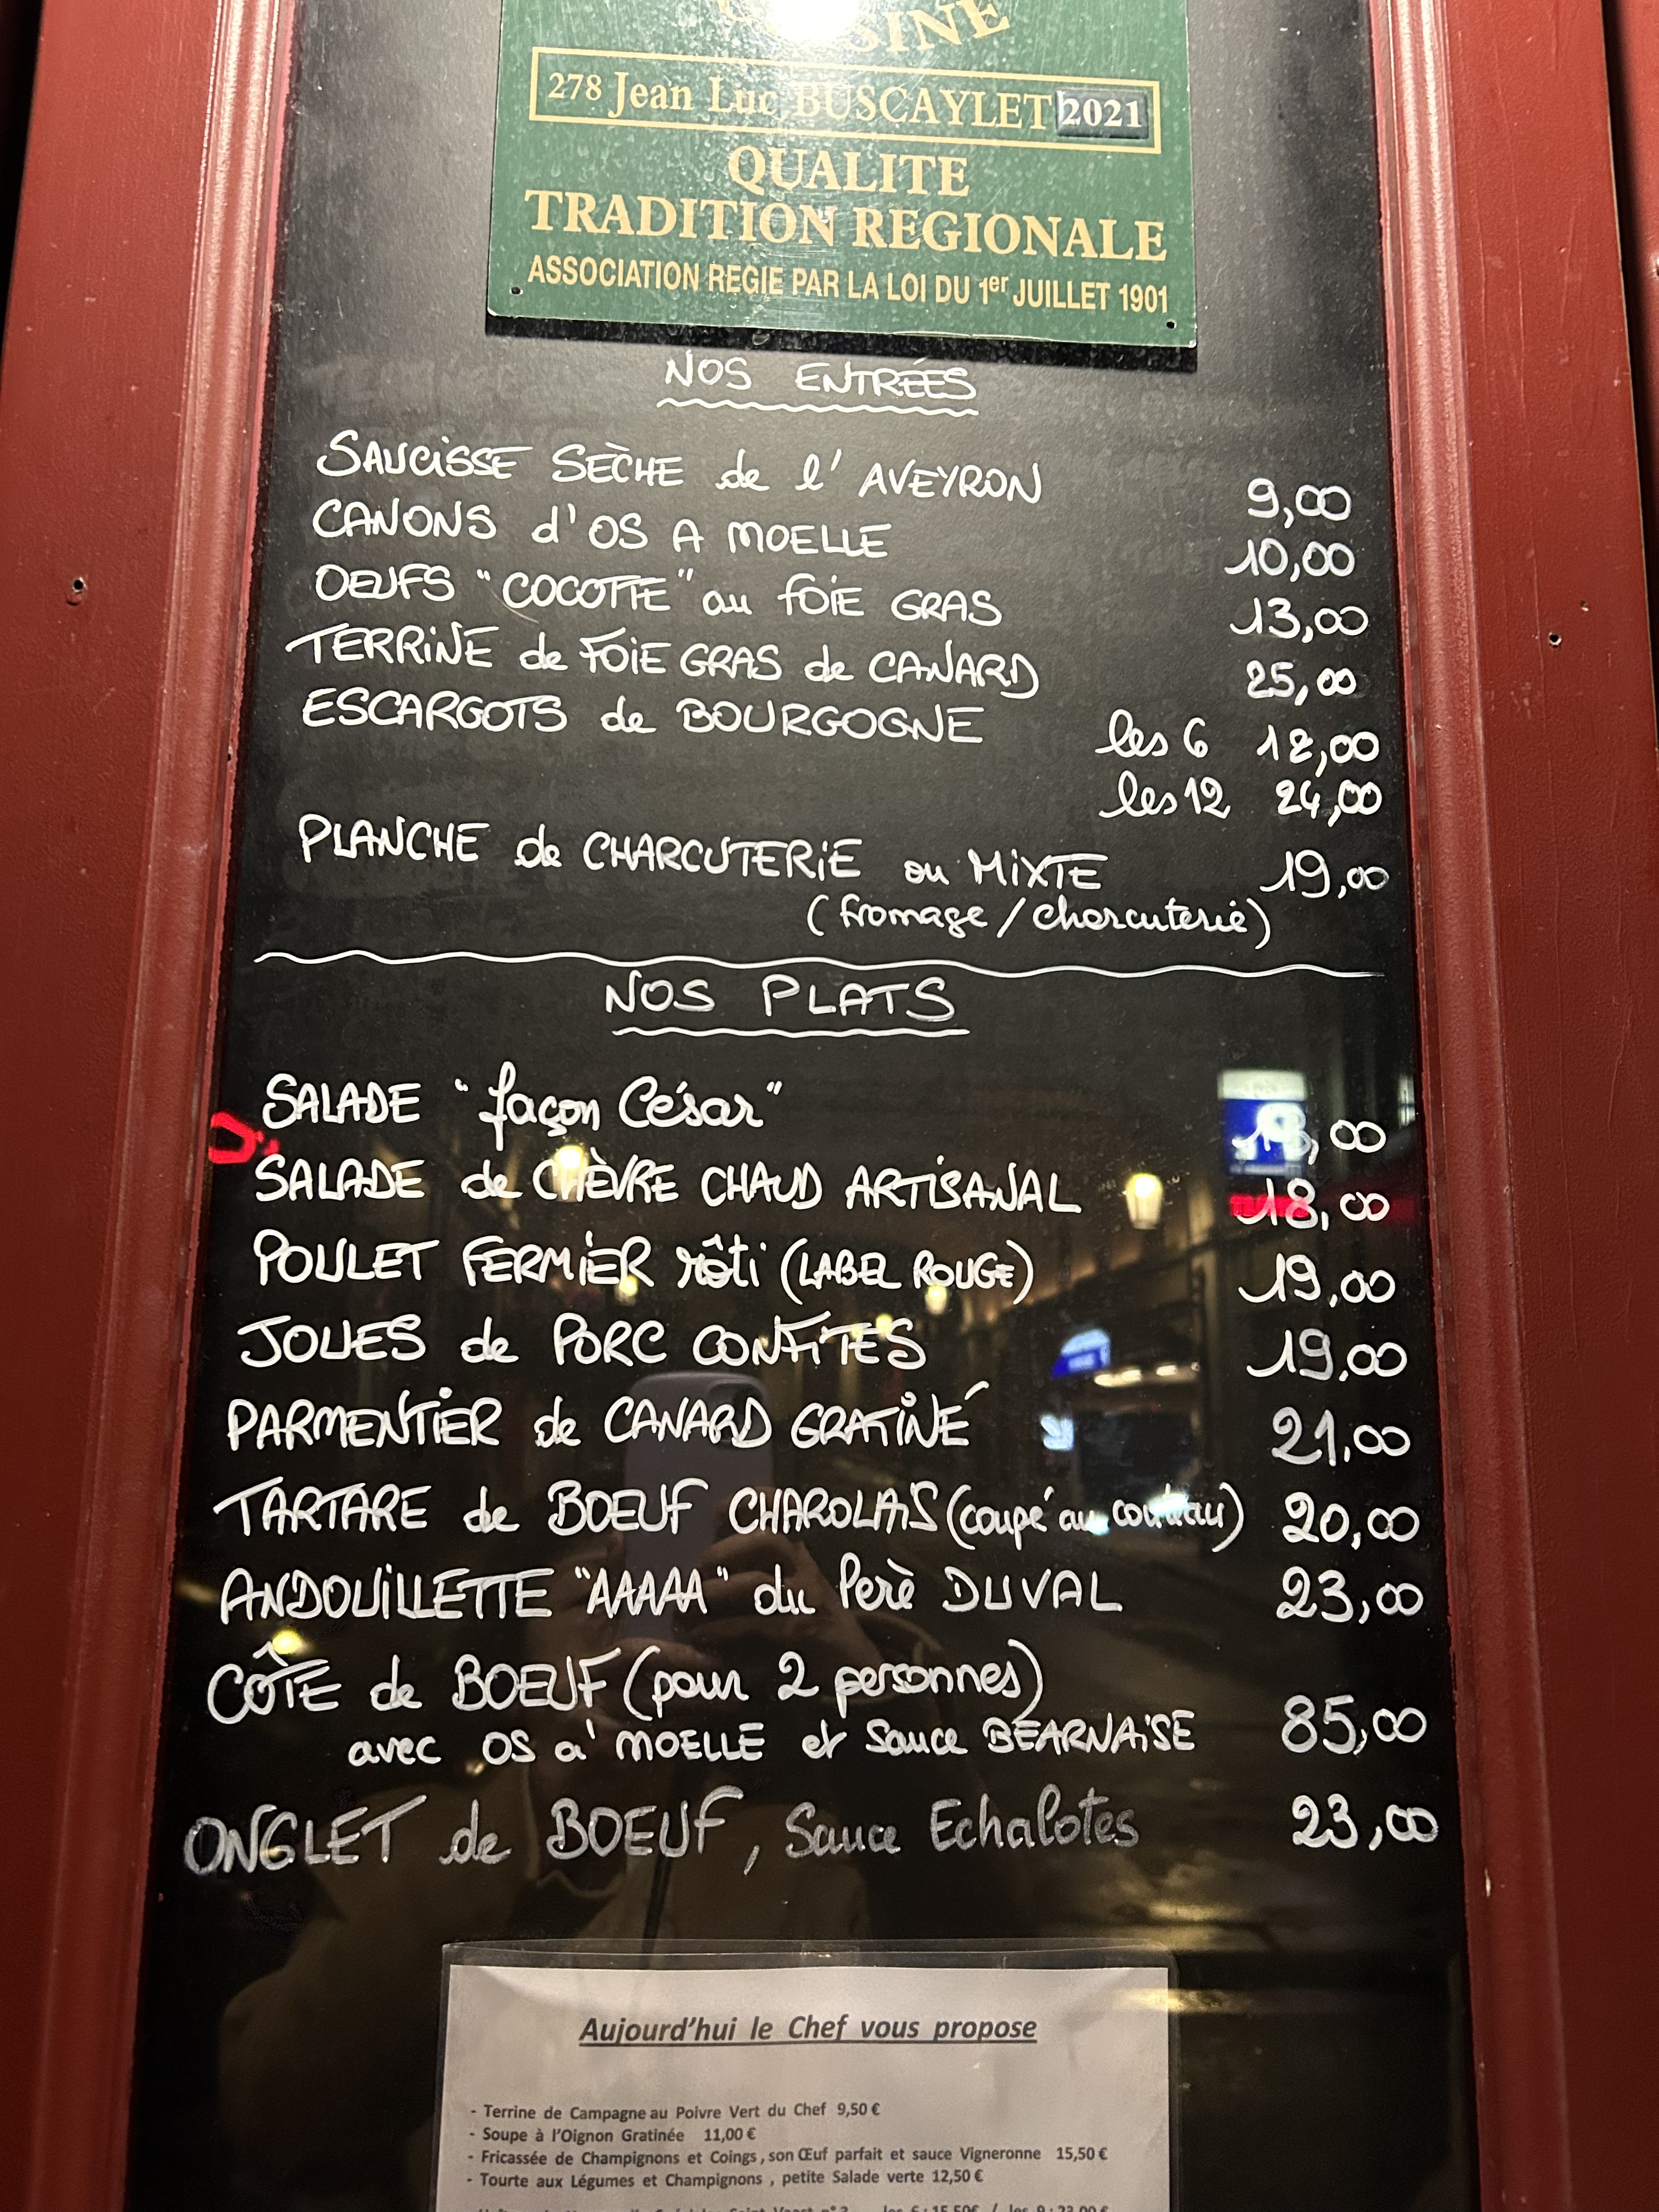 278 Jean Luc BUSCAYLET 2021
QUALITE
TRADITION REGIONALE
ASSOCIATION REGIE PAR LA LOI DU 1er JUILLET 1901
NOS ENTRÉES
SAUCISSE SÈCHE de l' AVEYRON 9,00
CANONS d'OS A MOELLE 10,00
OEUFS "COCOTTE" au FOIE GRAS 13,00
TERRINE de FOIE GRAS de CANARD 25,00
ESCARGOTS de BOURGOGNE les 6 12,00
les 12 24,00
PLANCHE de CHARCUTERIE ou MIXTE 19,00
(fromage / charcuterie)
NOS PLATS
SALADE "façon César"
SALADE de CHÈVRE CHAUD ARTISANAL 18,00
POULET FERMIER rôti (LABEL ROUGE) 19,00
JOUES de PORC CONFITES 19,00
PARMENTIER de CANARD GRATINÉ 21,00
TARTARE de BOEUF CHAROLAIS (coupé au couteau) 20,00
ANDOUILLETTE "AAAAA" du Perè DUVAL 23,00
CÔTE de BOEUF (pour 2 personnes)
avec OS à MOELLE et Sauce BÉARNAISE 85,00
ONGLET de BOEUF, Sauce Echalotes 23,00
Aujourd'hui le Chef vous propose
- Terrine de Campagne au Poivre Vert du Chef 9,50 €
- Soupe à l'Oignon Gratinée 11,00 €
- Fricassée de Champignons et Coings, son Œuf parfait et sauce Vigneronne 15,50 €
- Tourte aux Légumes et Champignons, petite Salade verte 12,50 €